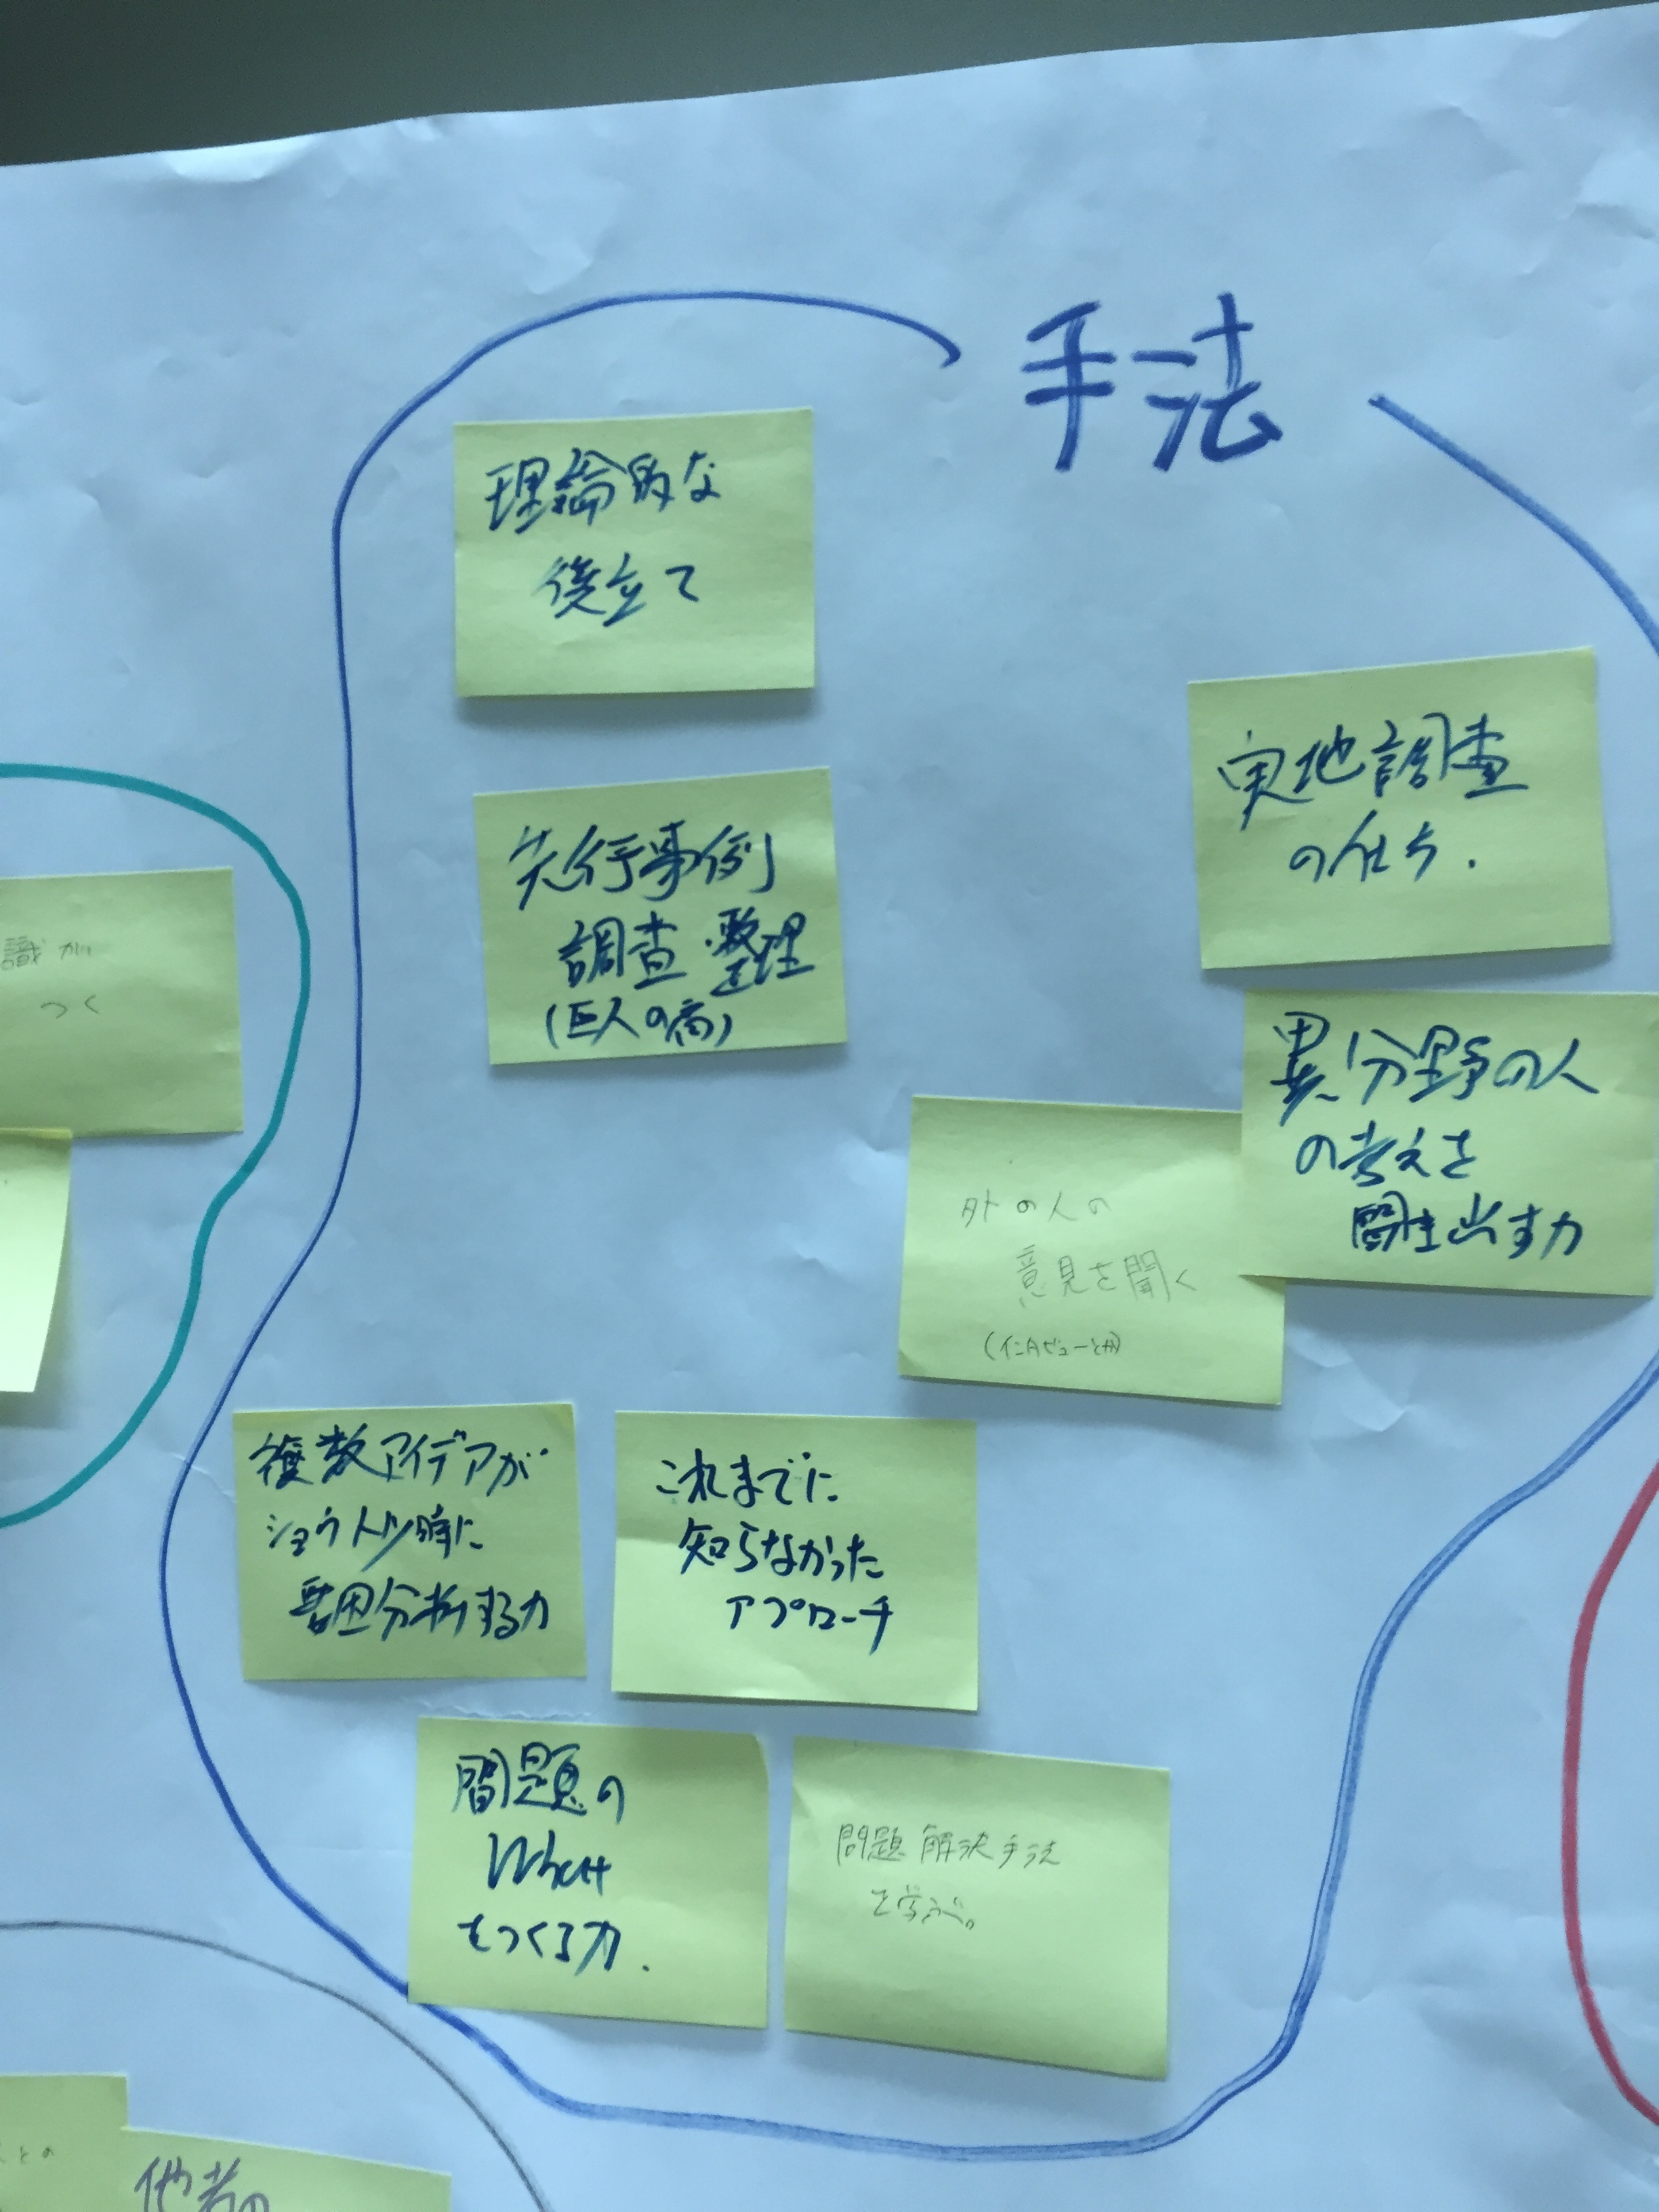 手法
理論的な
後立て
先行事例
調査・整理
(巨人の肩)
実地調査
の仕方.
異分野の人
の考えを
聞き出す力
外の人の
意見を聞く
(インタビューとか)
複数アイデアが
ショウトツ時に
要因分析する力
これまでに
知らなかった
アプローチ
問題の
What
をつくる力.
問題解決手法
を学ぶ。
識が
つく
との
他者の